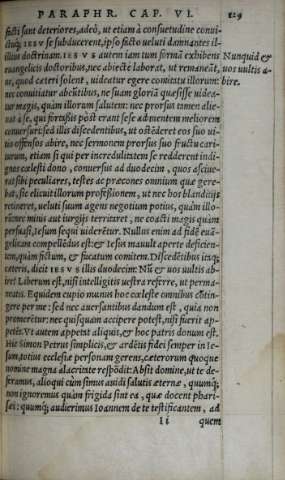 PARAPHR. CAP. VI. 129
facti sunt deteriores, adeò, ut etiam à consuetudine conui-
ctuq; IESV se subducerent, ipso facto ueluti damnantes il-
lius doctrinam. IESVS autem iam tum formã exhibens
euangelicis doctoribus, nec abiecte laborat, ut remaneãt,
Nunquid &
uos uultis a-
bire.
ne, quod cæteri solent, uideatur egere comitatu illorum:
nec conuitiatur abeũtibus, ne suam gloriã quæsisse uidea-
tur magis, quàm illorum salutem: nec prorsus tamen alie-
nat à se, qui fortassis pòst erant sese ad mentem meliorem
conuersuri: sed illis discedentibus, ut ostẽderet eos suo ui-
tio offensos abire, nec sermonem prorsus suo fructu cari-
turum, etiam si qui per incredulitatem se redderent indi-
gnos cœlesti dono, conuersus ad duodecim, quos asciue-
rat sibi peculiares, testes ac præcones omnium quæ gere-
bat, sic elicuit illorum professionem, ut nec hos blanditijs
retineret, ueluti suum agens negotium potius, quàm illo-
rũ: nec minis aut iurgijs territaret, ne coacti magis quàm
persuasi, Iesum sequi uiderẽtur. Nullus enim ad fidẽ euã-
gelicam compellẽdus est: & Iesus mauult aperte deficien-
tem, quàm fictum, & fucatum comitem. Discedẽtibus itaq;
cæteris, dicit IESVS illis duodecim: Nũ & uos uultis ab-
ire? Liberum est, nisi intelligitis uestra referre, ut perma-
neatis. Equidem cupio munus hoc cœleste omnibus cõtin-
gere per me: sed nec auersantibus dandum est, quia non
promeretur: nec quisquam accipere potest, nisi fuerit ap-
petẽs. Vt autem appetat aliquis, & hoc patris donum est.
Hic Simon Petrus simplicis, & ardẽtis fidei semper in Ie-
sum, totius ecclesiæ personam gerens, cæterorum quoque
nomine magna alacritate respõdit: Absit domine, ut te de-
seramus, alioqui cùm simus auidi salutis æternæ, quumq;
non ignoremus quàm frigida sint ea, quæ docent phari-
sæi: quumq; audierimus Ioannem de te testificantem, ad
Ii quem